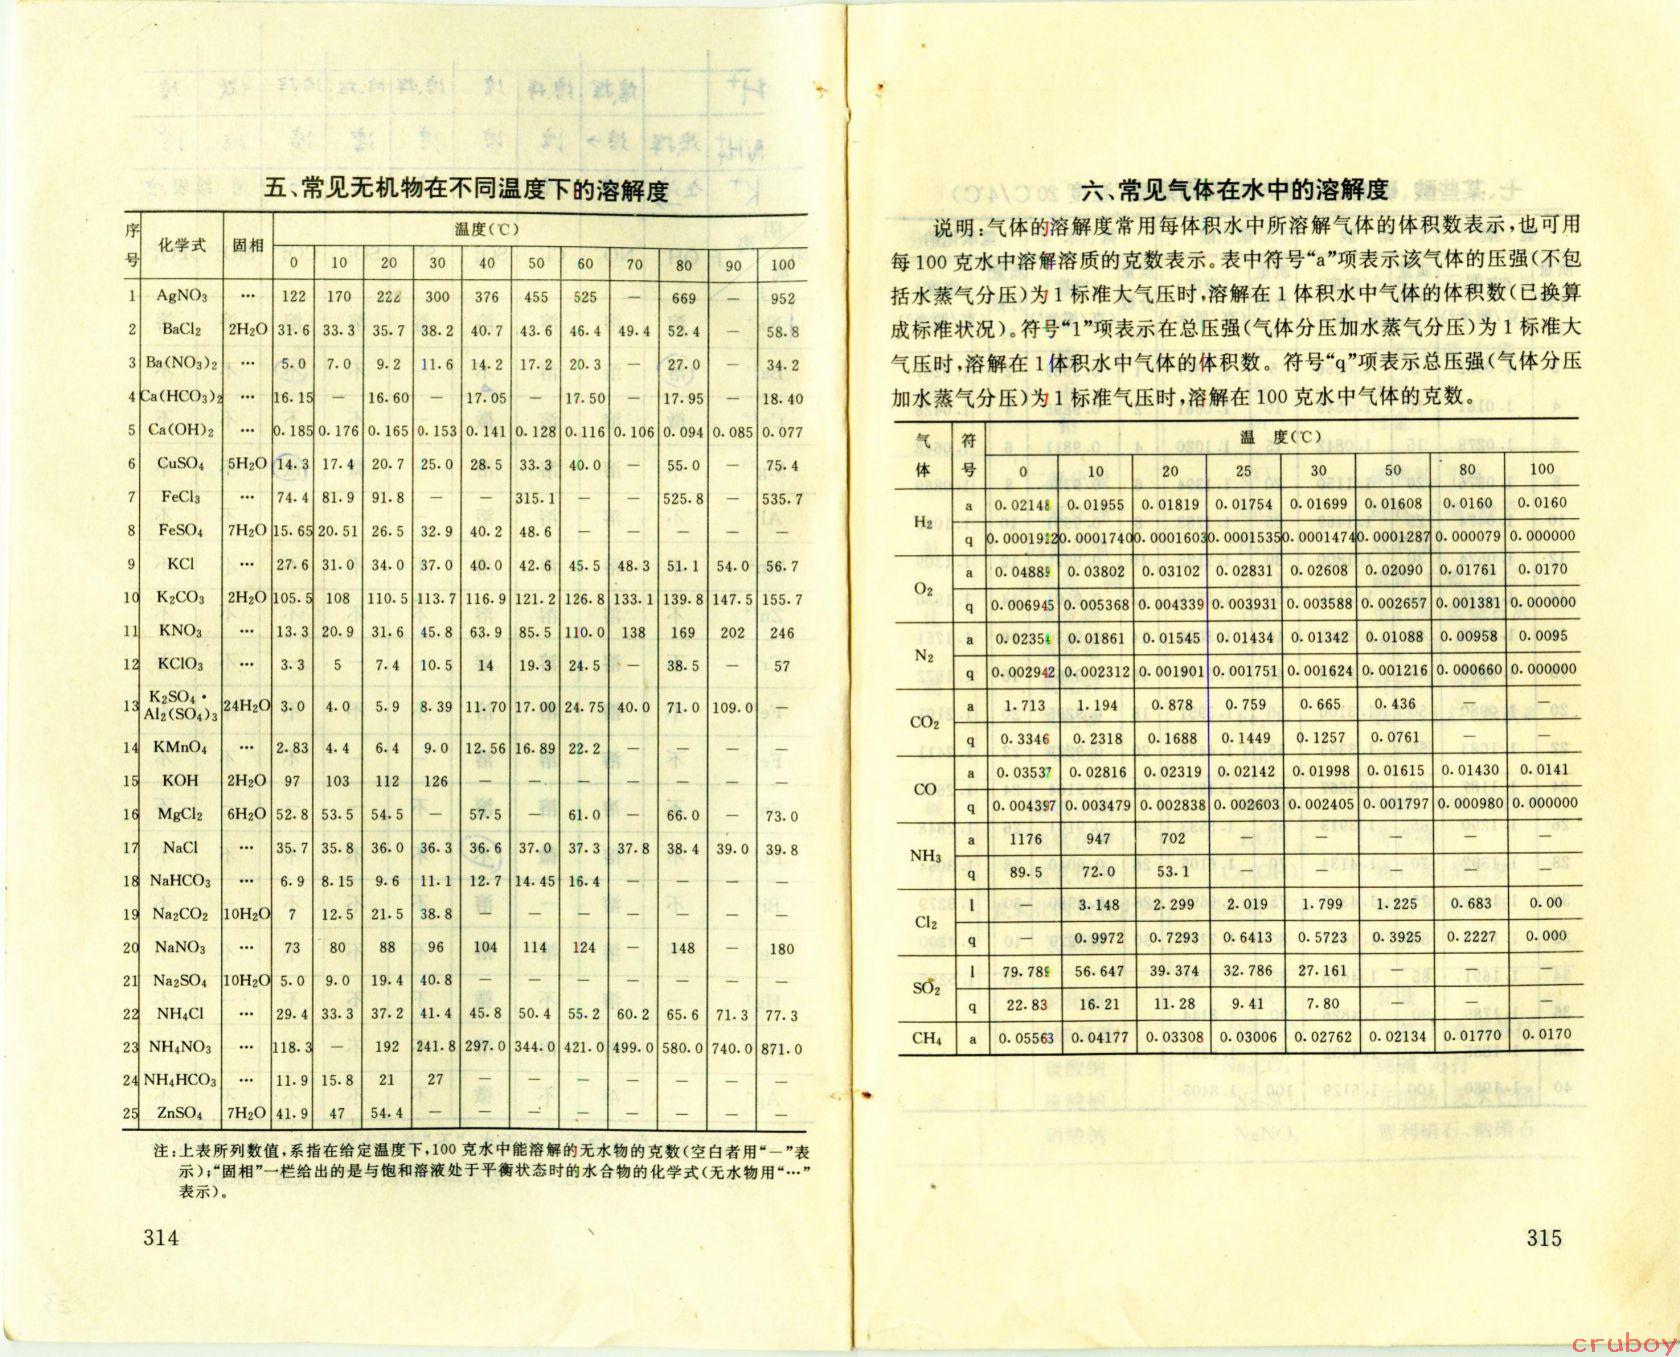 五、常见无机物在不同温度下的溶解度
序号 化学式 固相 温度(℃)
0 10 20 30 40 50 60 70 80 90 100
1 AgNO₃ … 122 170 222 300 376 455 525 — 669 — 952
2 BaCl₂ 2H₂O 31.6 33.3 35.7 38.2 40.7 43.6 46.4 49.4 52.4 — 58.8
3 Ba(NO₃)₂ … 5.0 7.0 9.2 11.6 14.2 17.2 20.3 — 27.0 — 34.2
4 Ca(HCO₃)₂ … 16.15 — 16.60 — 17.05 — 17.50 — 17.95 — 18.40
5 Ca(OH)₂ … 0.185 0.176 0.165 0.153 0.141 0.128 0.116 0.106 0.094 0.085 0.077
6 CuSO₄ 5H₂O 14.3 17.4 20.7 25.0 28.5 33.3 40.0 — 55.0 — 75.4
7 FeCl₃ … 74.4 81.9 91.8 — — 315.1 — — 525.8 — 535.7
8 FeSO₄ 7H₂O 15.65 20.51 26.5 32.9 40.2 48.6 — — — — —
9 KCl … 27.6 31.0 34.0 37.0 40.0 42.6 45.5 48.3 51.1 54.0 56.7
10 K₂CO₃ 2H₂O 105.5 108 110.5 113.7 116.9 121.2 126.8 133.1 139.8 147.5 155.7
11 KNO₃ … 13.3 20.9 31.6 45.8 63.9 85.5 110.0 138 169 202 246
12 KClO₃ … 3.3 5 7.4 10.5 14 19.3 24.5 — 38.5 — 57
13 K₂SO₄·Al₂(SO₄)₃ 24H₂O 3.0 4.0 5.9 8.39 11.70 17.00 24.75 40.0 71.0 109.0 —
14 KMnO₄ … 2.83 4.4 6.4 9.0 12.56 16.89 22.2 — — — —
15 KOH 2H₂O 97 103 112 126 — — — — — — —
16 MgCl₂ 6H₂O 52.8 53.5 54.5 — 57.5 — 61.0 — 66.0 — 73.0
17 NaCl … 35.7 35.8 36.0 36.3 36.6 37.0 37.3 37.8 38.4 39.0 39.8
18 NaHCO₃ … 6.9 8.15 9.6 11.1 12.7 14.45 16.4 — — — —
19 Na₂CO₂ 10H₂O 7 12.5 21.5 38.8 — — — — — — —
20 NaNO₃ … 73 80 88 96 104 114 124 — 148 — 180
21 Na₂SO₄ 10H₂O 5.0 9.0 19.4 40.8 — — — — — — —
22 NH₄Cl … 29.4 33.3 37.2 41.4 45.8 50.4 55.2 60.2 65.6 71.3 77.3
23 NH₄NO₃ … 118.3 — 192 241.8 297.0 344.0 421.0 499.0 580.0 740.0 871.0
24 NH₄HCO₃ … 11.9 15.8 21 27 — — — — — — —
25 ZnSO₄ 7H₂O 41.9 47 54.4 — — — — — — — —
注:上表所列数值,系指在给定温度下,100克水中能溶解的无水物的克数(空白者用“—”表
示);“固相”一栏给出的是与饱和溶液处于平衡状态时的水合物的化学式(无水物用“…”
表示)。
314
六、常见气体在水中的溶解度
说明:气体的溶解度常用每体积水中所溶解气体的体积数表示,也可用
每100克水中溶解溶质的克数表示。表中符号“a”项表示该气体的压强(不包
括水蒸气分压)为1标准大气压时,溶解在1体积水中气体的体积数(已换算
成标准状况)。符号“1”项表示在总压强(气体分压加水蒸气分压)为1标准大
气压时,溶解在1体积水中气体的体积数。符号“q”项表示总压强(气体分压
加水蒸气分压)为1标准气压时,溶解在100克水中气体的克数。
气体 符号 温 度(℃)
0 10 20 25 30 50 80 100
H₂ a 0.02148 0.01955 0.01819 0.01754 0.01699 0.01608 0.0160 0.0160
q 0.0001922 0.0001740 0.0001603 0.0001535 0.0001474 0.0001287 0.000079 0.000000
O₂ a 0.04889 0.03802 0.03102 0.02831 0.02608 0.02090 0.01761 0.0170
q 0.006945 0.005368 0.004339 0.003931 0.003588 0.002657 0.001381 0.000000
N₂ a 0.02354 0.01861 0.01545 0.01434 0.01342 0.01088 0.00958 0.0095
q 0.002942 0.002312 0.001901 0.001751 0.001624 0.001216 0.000660 0.000000
CO₂ a 1.713 1.194 0.878 0.759 0.665 0.436 — —
q 0.3346 0.2318 0.1688 0.1449 0.1257 0.0761 — —
CO a 0.03537 0.02816 0.02319 0.02142 0.01998 0.01615 0.01430 0.0141
q 0.004397 0.003479 0.002838 0.002603 0.002405 0.001797 0.000980 0.000000
NH₃ a 1176 947 702 — — — — —
q 89.5 72.0 53.1 — — — — —
Cl₂ l — 3.148 2.299 2.019 1.799 1.225 0.683 0.00
q — 0.9972 0.7293 0.6413 0.5723 0.3925 0.2227 0.000
SO₂ l 79.789 56.647 39.374 32.786 27.161 — — —
q 22.83 16.21 11.28 9.41 7.80 — — —
CH₄ a 0.05563 0.04177 0.03308 0.03006 0.02762 0.02134 0.01770 0.0170
315
cruboy